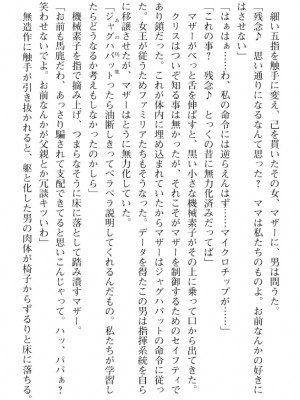 細い五指を触手に変え、己を貫いたその女、マザーに、男は問うた。
「残念♪　思い通りになるなんて思った？　ママは私たちのものよ。お前なんかの好きに
はさせない」
「はぁはぁ……わ、私の命令には逆らえんはず……マイクロチップが……」
「これの事？　残念♪　とっくの昔に無力化済みだってば」
マザーがべっと舌を伸ばすと、黒い小さな機械素子がその上に乗って口から出てきた。
クリスはついぞ知る事は無かったが、それこそがマザーを制御するためのセイフティで
あり鎖だった。これが体内に埋め込まれていたからマザーはジャグハバットの命令に従う
だ。女王が従うためファミリアたちもそうなった。データを得たこの男は指揮系統を自ら
に移譲させたが、マザーはとうに無力化していた。
「ジャグハバットったら油断しきってペラペラ説明してくれるんだもの。私たちが学習し
たらどうなるか考えもしなかったのかしら」
機械素子を指で摘み上げ、つまらなそうに床に落として踏み潰すマザー。
「お前も馬鹿だわ、あっさり騙されて支配できてると思いこんじゃって。ハッ、パパぁ？
笑わせないでよ。お前なんかが父親とか冗談キツいわ」
無造作に触手が引き抜かれると、躯と化した男の肉体が椅子からずるりと床に落ちる。